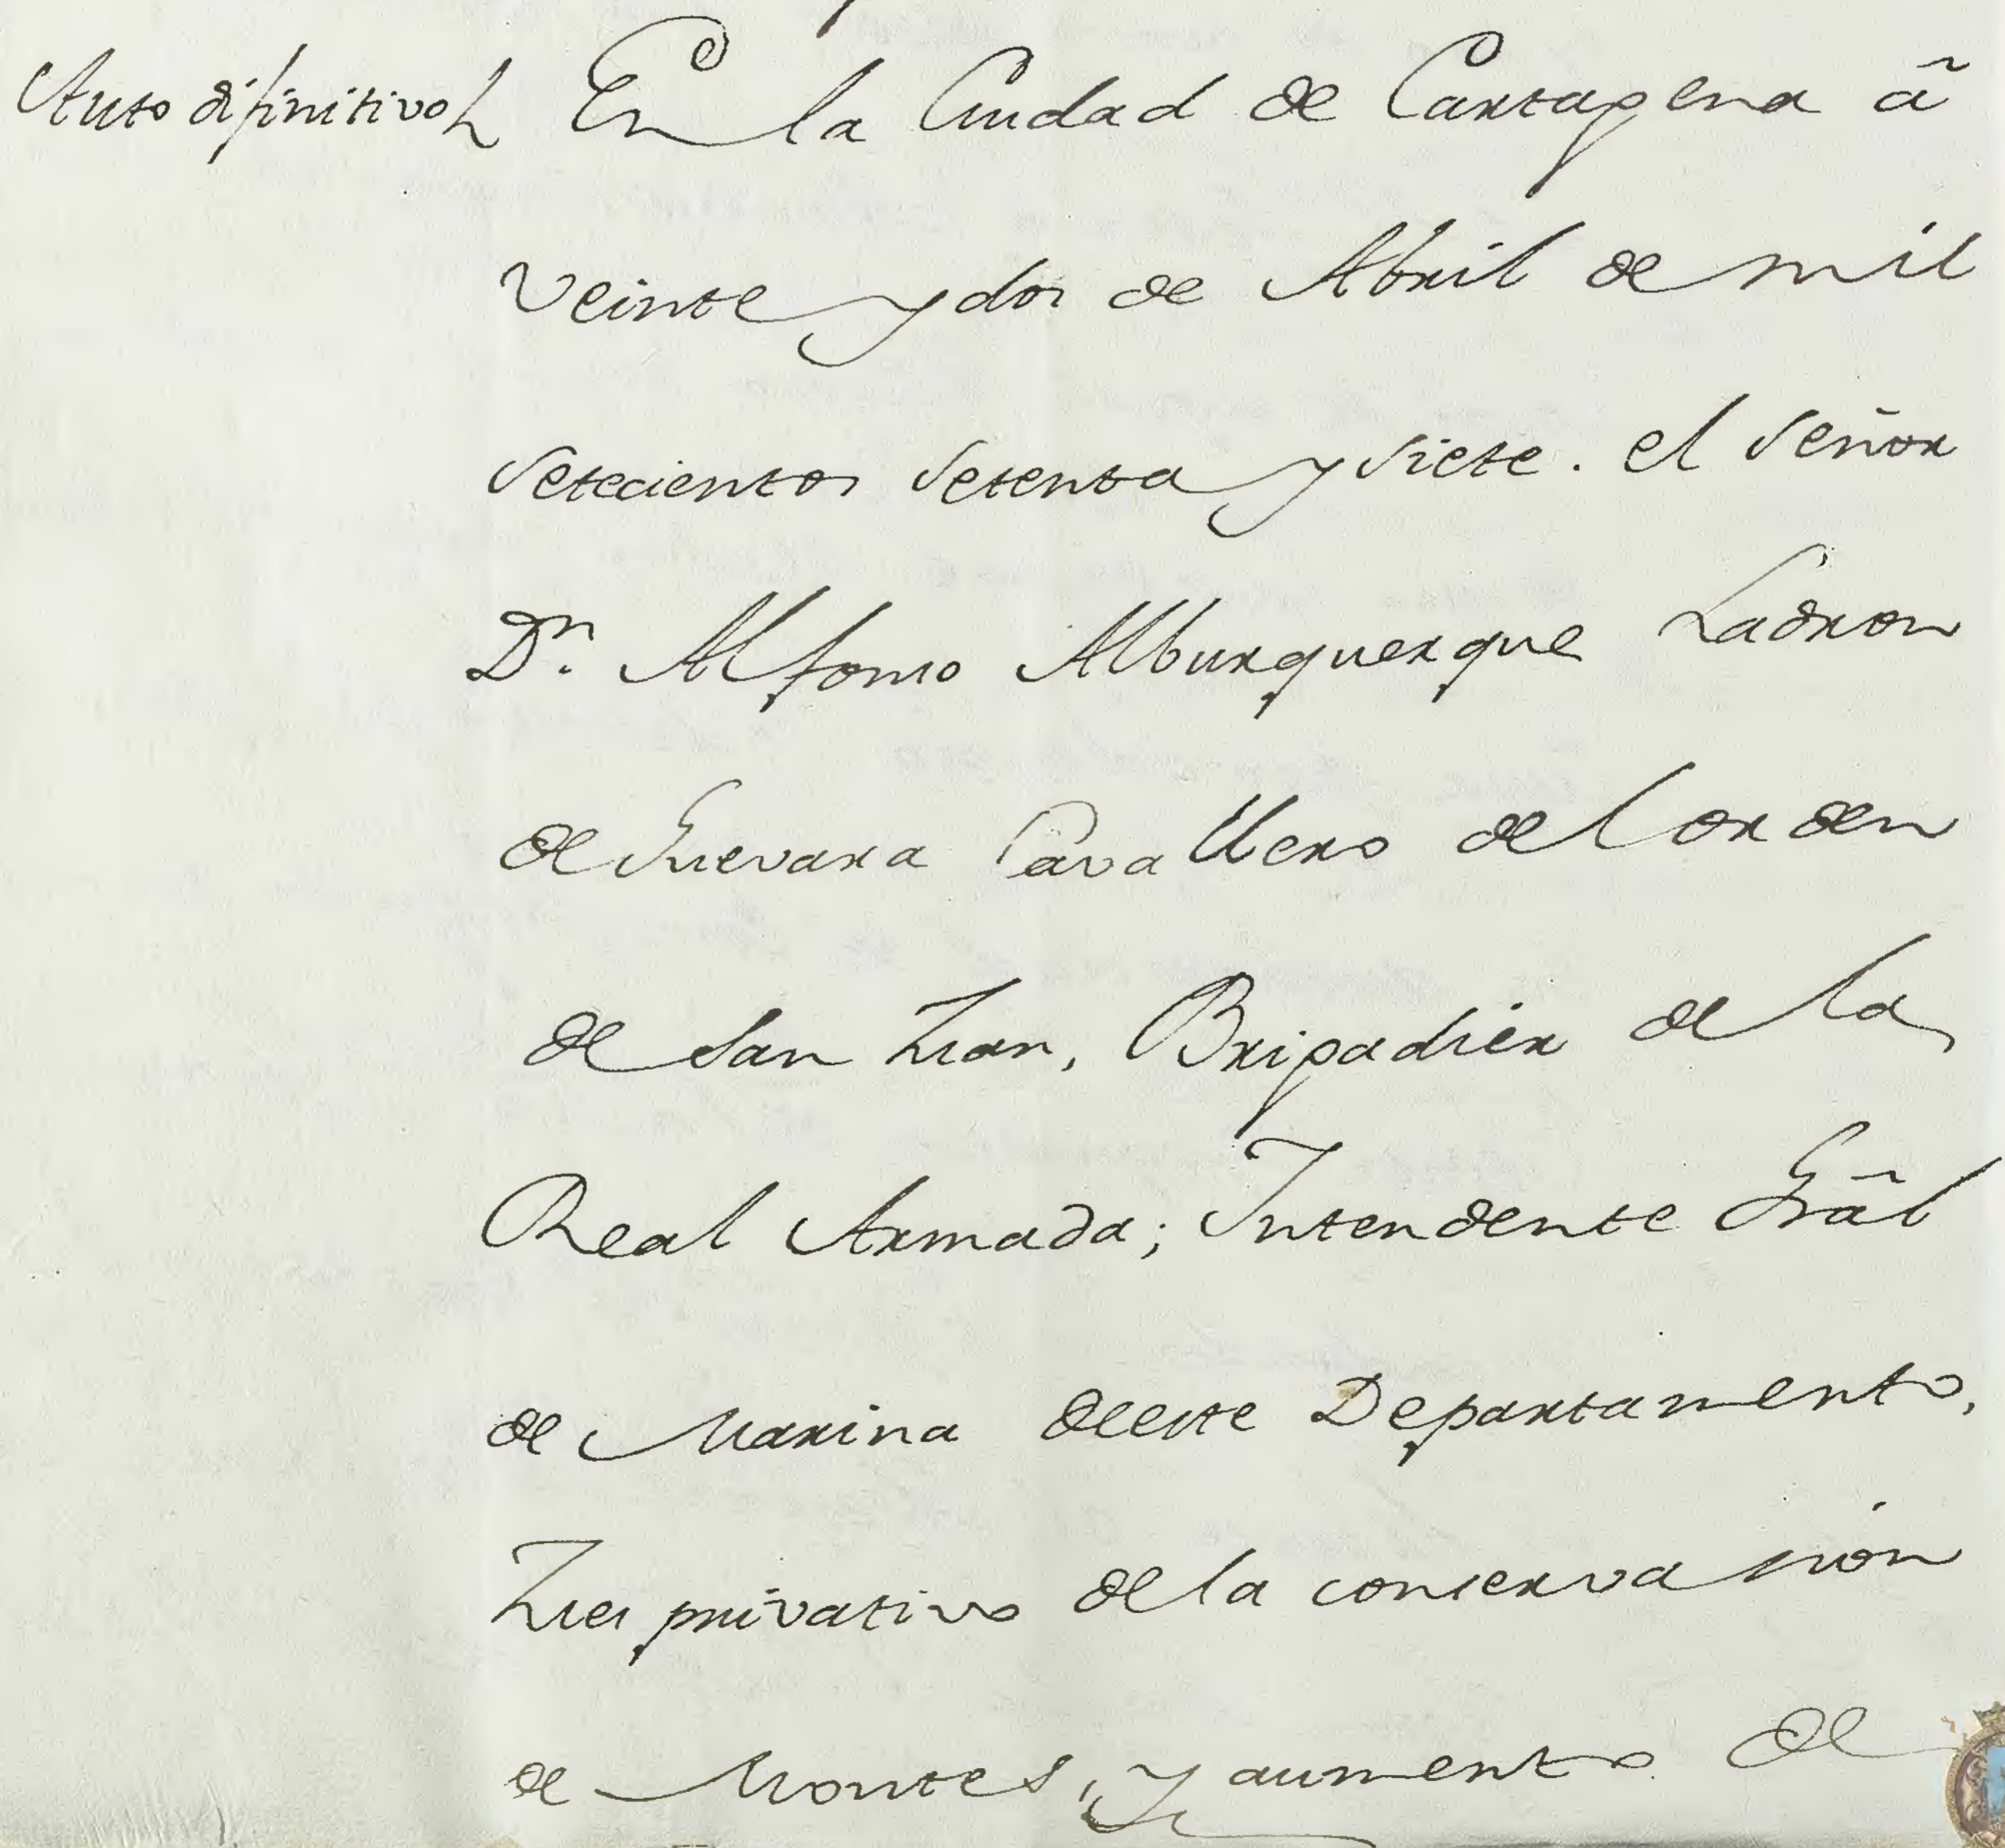 Auto difinitivo
En la Ciudad de Cartagena â
veinte y dos de Abril de mil
setecientos setenta y siete. el señor
Dn. Alfonso Alburquerque Ladron
de Guevara Cavallero del orden
de San Juan, Brigadier de la
Real Armada; Intendente Grâl
de Marina de este Departamento,
Jues privativo de la conservasion
de Montes, y aumento de